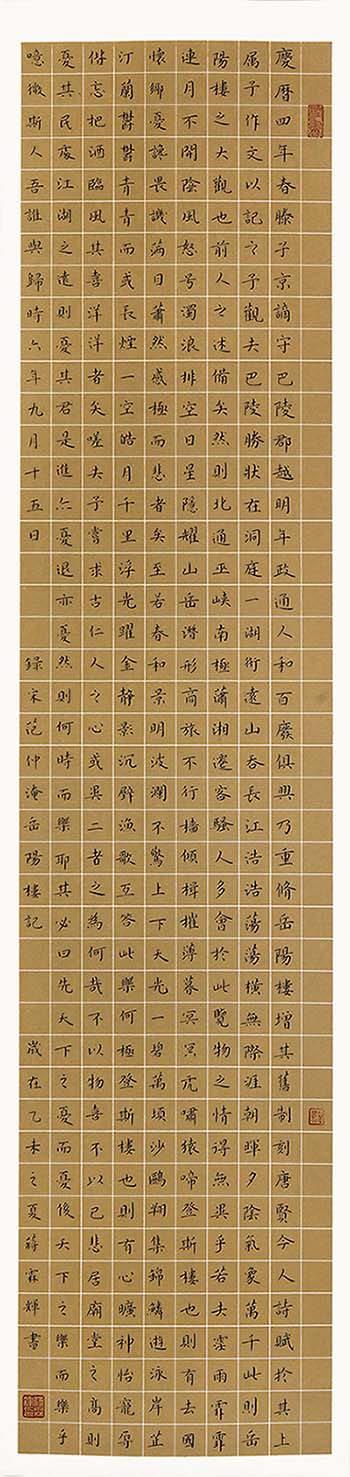 慶曆四年春滕子京謫守巴陵郡越明年政通人和百廢俱興乃重脩岳陽樓增其舊制刻唐賢今人詩賦於其上
属予作文以記之予觀夫巴陵勝狀在洞庭一湖銜遠山吞長江浩浩蕩蕩橫無際涯朝暉夕陰氣象萬千此則岳
陽樓之大觀也前人之述備矣然則北通巫峽南極瀟湘遷客騷人多會於此覽物之情得無異乎若夫霪雨霏霏
連月不開陰風怒号濁浪排空日星隱耀山岳潛形商旅不行檣傾楫摧薄暮冥冥虎嘯猿啼登斯樓也則有去國
懷鄉憂讒畏譏滿目蕭然感極而悲者矣至若春和景明波瀾不驚上下天光一碧萬頃沙鷗翔集錦鱗遊泳岸芷
汀蘭鬱鬱青青而或長煙一空皓月千里浮光躍金靜影沉璧漁歌互答此樂何極登斯樓也則有心曠神怡寵辱
偕忘把酒臨風其喜洋洋者矣嗟夫予嘗求古仁人之心或異二者之為何哉不以物喜不以己悲居廟堂之高則
憂其民處江湖之遠則憂其君是進亦憂退亦憂然則何時而樂耶其必曰先天下之憂而憂後天下之樂而樂乎
噫微斯人吾誰與歸時六年九月十五日 錄宋范仲淹岳陽樓記 歲在乙未之夏蔣霖輝書